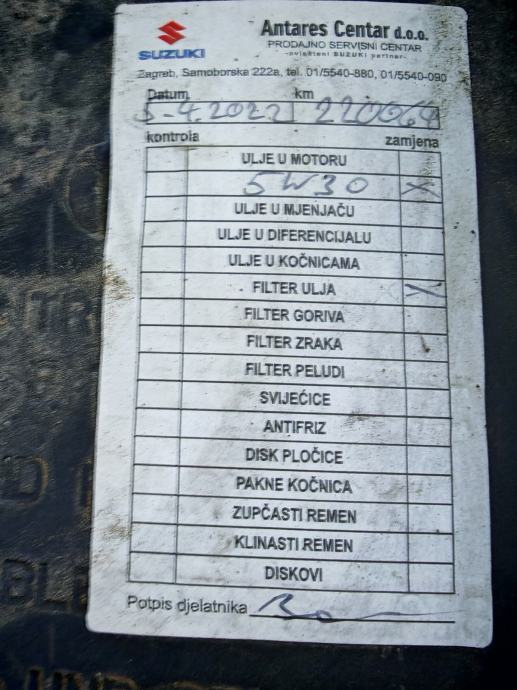 SUZUKI
Antares Centar d.o.o.
PRODAJNO SERVISNI CENTAR
-ovlašteni SUZUKI partner-
Zagreb, Samoborska 222a, tel. 01/5540-880, 01/5540-090
Datum km
5-4.2022 220064
kontrola zamjena
ULJE U MOTORU
5W30 X
ULJE U MJENJAČU
ULJE U DIFERENCIJALU
ULJE U KOČNICAMA
FILTER ULJA X
FILTER GORIVA
FILTER ZRAKA
FILTER PELUDI
SVIJEĆICE
ANTIFRIZ
DISK PLOČICE
PAKNE KOČNICA
ZUPČASTI REMEN
KLINASTI REMEN
DISKOVI
Potpis djelatnika